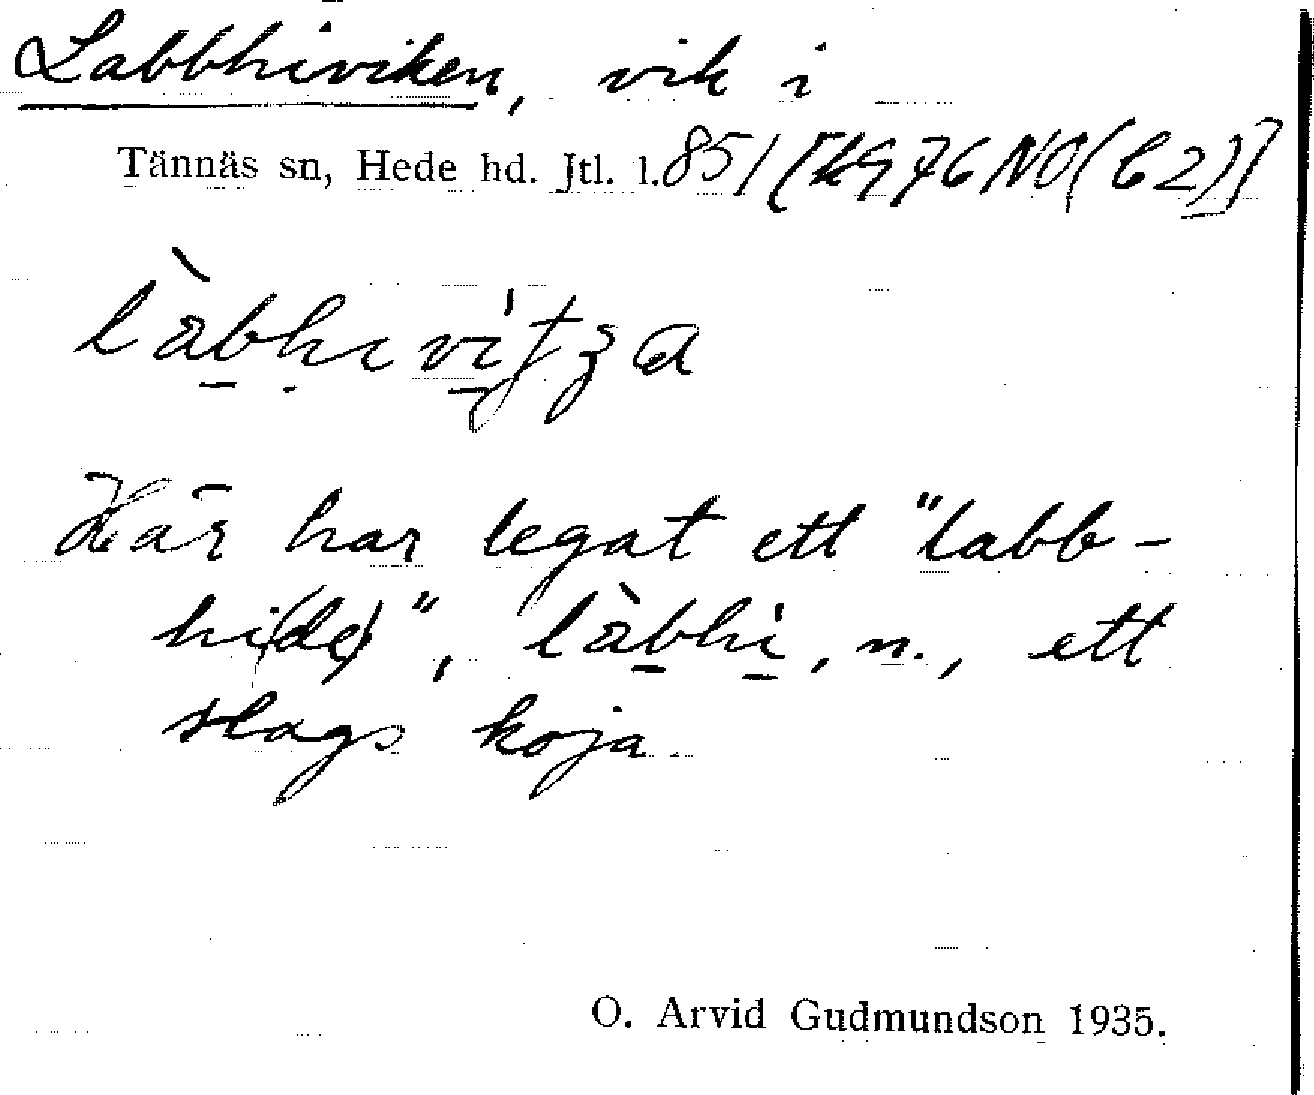 Labbhiviken, vik i
Tännäs sn, Hede hd. Jtl. l. 851 [kg 76 NO (C2)]
làbhivitʒa
Här har legat ett "labb-
hi(de)", làbhi, n., ett
slags koja
O. Arvid Gudmundson 1935.